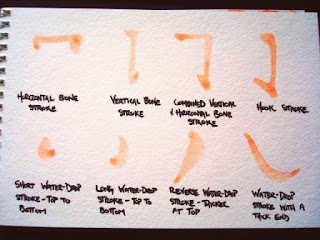 HORIZONTAL BONE
STROKE
VERTICAL BONE
STROKE
COMBINED VERTICAL
& HORIZONTAL BONE
STROKE
HOOK STROKE
SHORT WATER-DROP
STROKE - TOP TO
BOTTOM
LONG WATER-DROP
STROKE - TOP TO
BOTTOM
REVERSE WATER-DROP
STROKE - THICKER
AT TOP
WATER-DROP
STROKE WITH A
THICK END